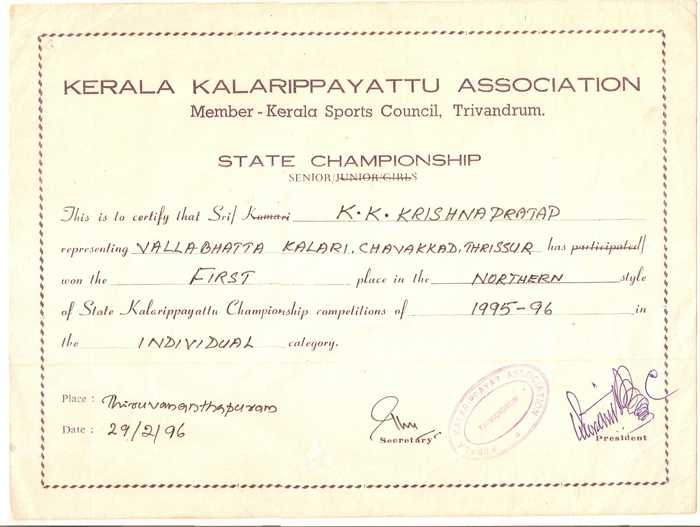 KERALA KALARIPPAYATTU ASSOCIATION
Member - Kerala Sports Council, Trivandrum.
STATE CHAMPIONSHIP
SENIOR/JUNIOR/GIRLS
This is to certify that Sri/ Kumari K. K. KRISHNAPRATAP
representing VALLABHATTA KALARI, CHAVAKKAD, THRISSUR has participated/
won the FIRST place in the NORTHERN style
of State Kalarippayattu Championship competitions of 1995-96 in
the INDIVIDUAL category.
Place : Thiruvananthapuram
Date : 29/2/96
Secretary
KERALA KALARIPPAYAT ASSOCIATION
TRIVANDRUM
President